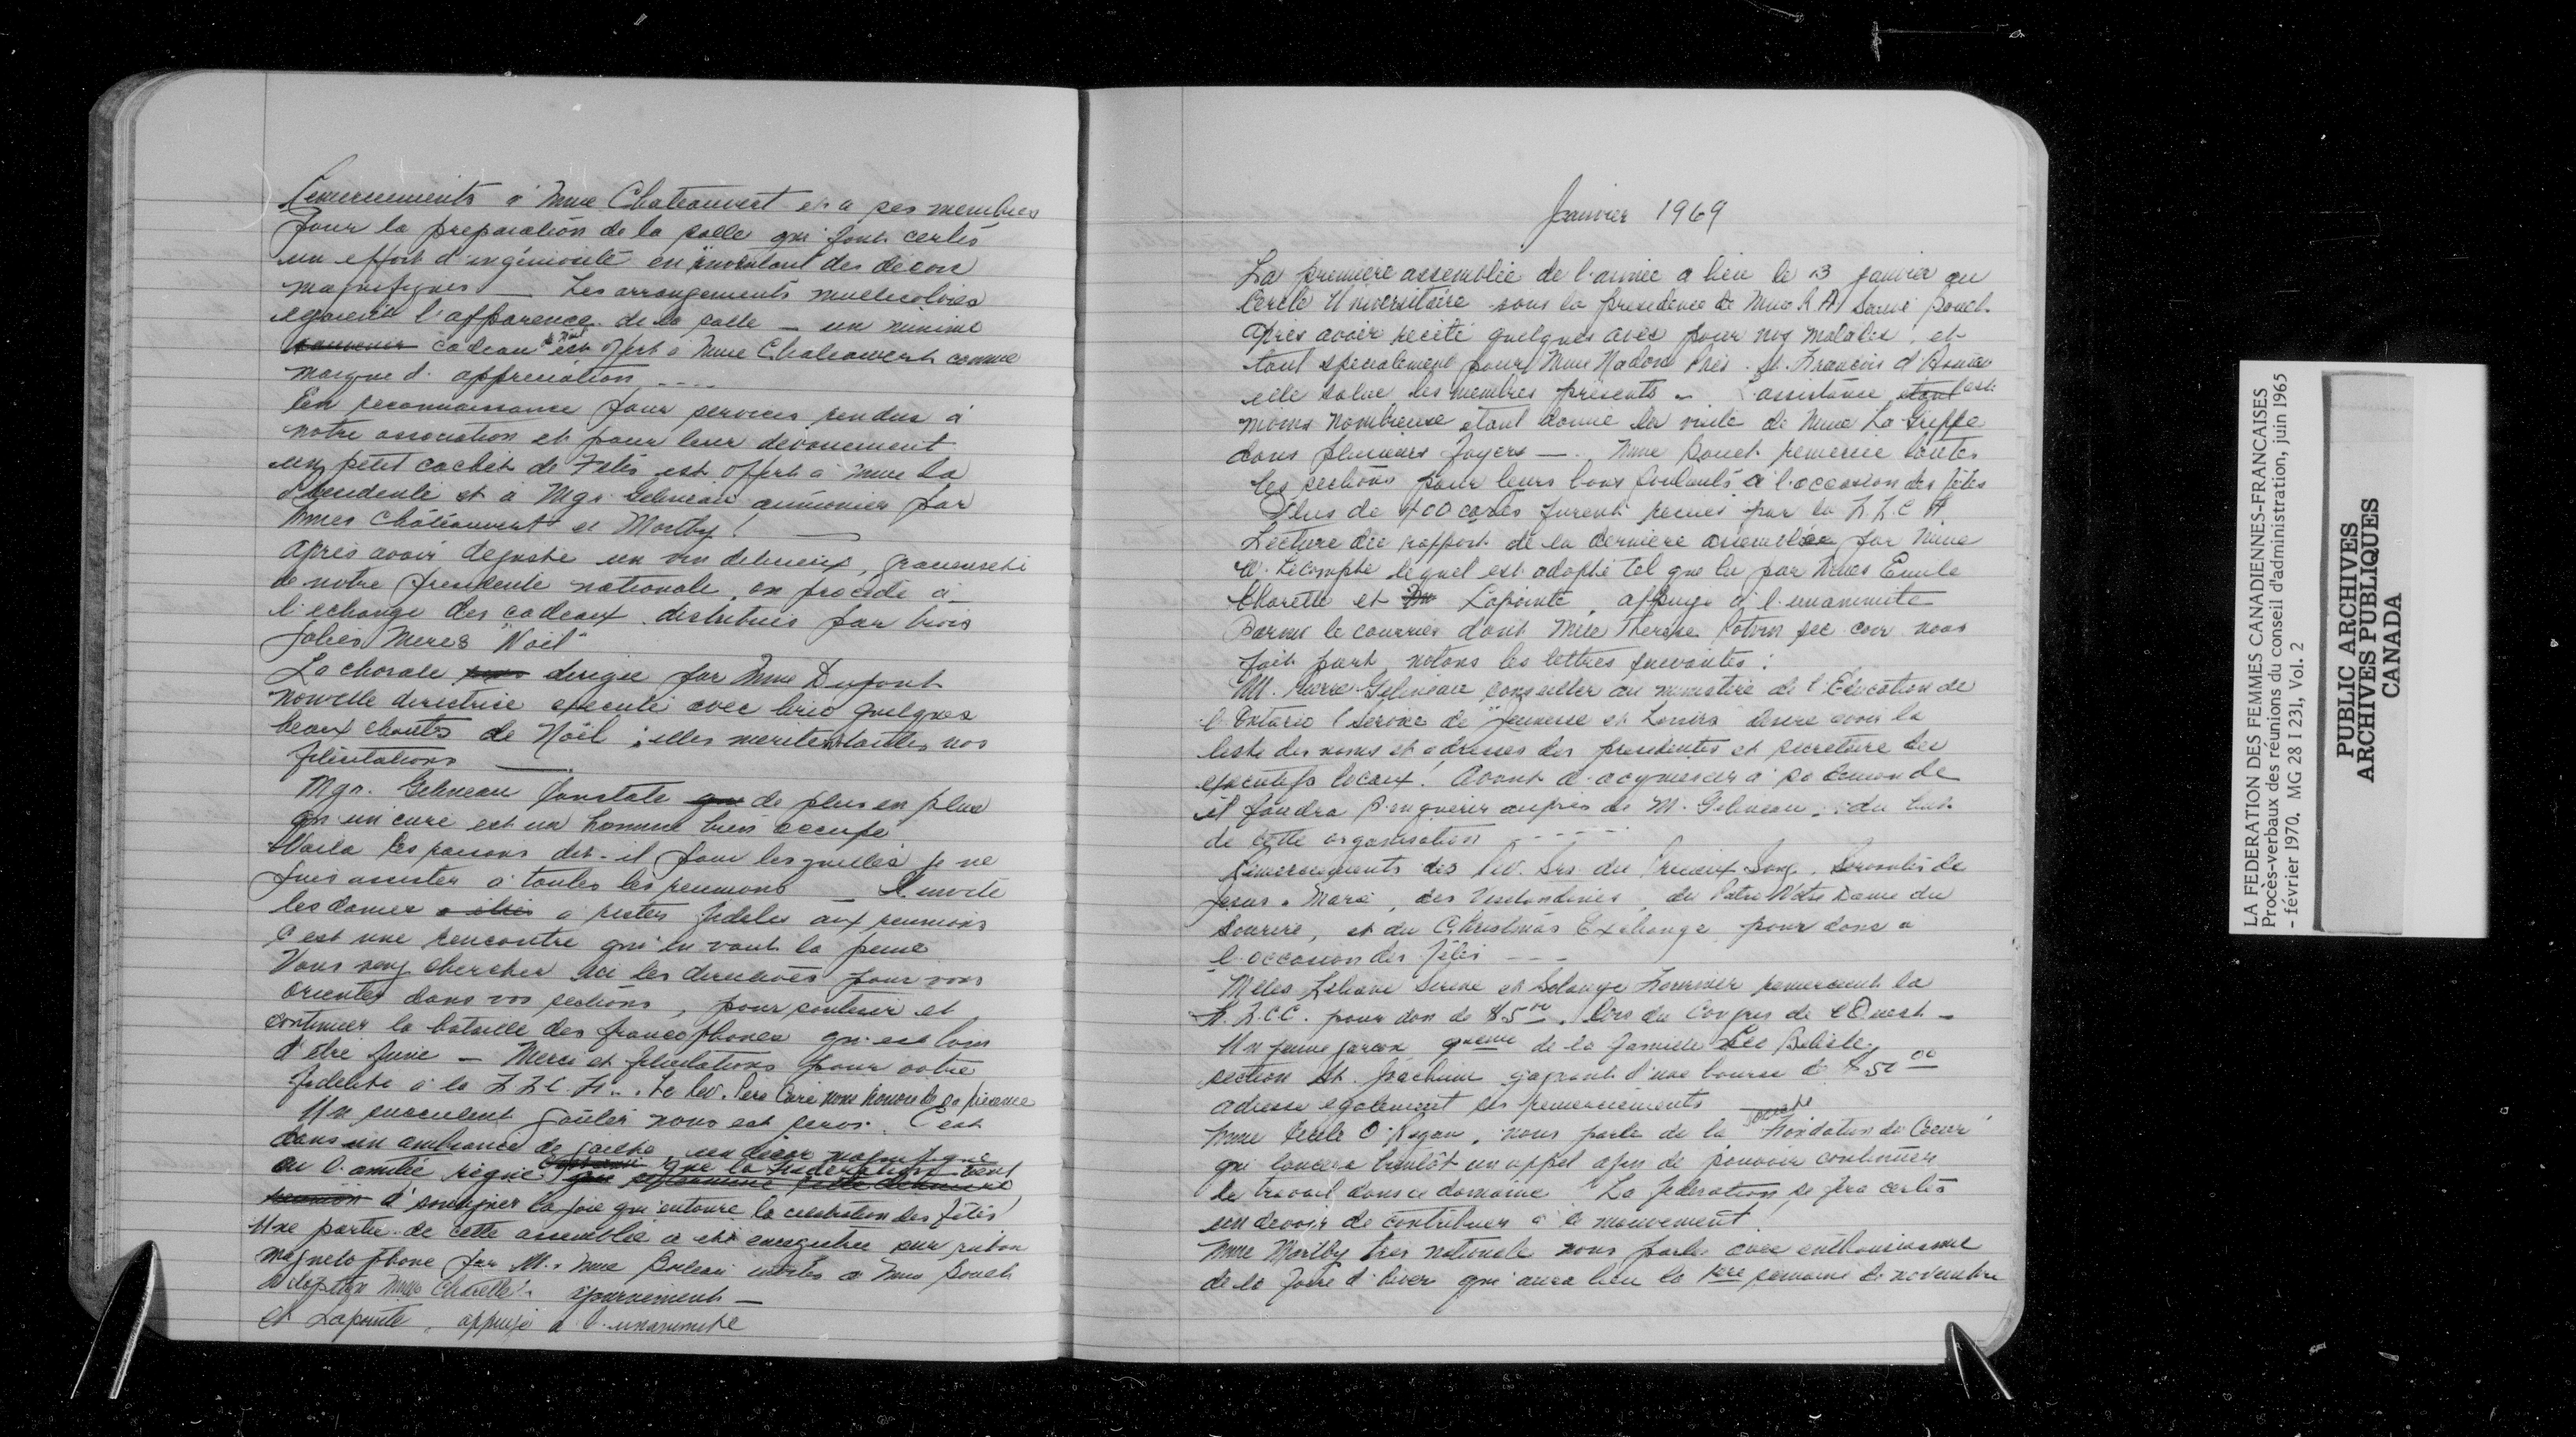 Remerciements à Mme Chateauvert et a ses membres
pour la preparation de la salle qui font certes
un effort d'ingéniosité en inventant des décors
magnifiques — Les arrangements multicolores
egaient l'apparence de la salle — un minime
souvenir cadeau de Noël est offert à Mme Chateauvert comme
marque d'appreciation ----
En reconnaissance pour services rendus à
notre association et pour leur devouement
un petit cachet de Fetes est offert à Mme la
Presidente et à Mgr. Gelineau aumonier par
Mmes Châteauvert et Mortby !
Après avoir degusté un vin delicieux, gracieuseté
de notre presidente nationale, on procède à
l'echange des cadeaux distribués par trois
jolies Meres "Noël"
La chorale dirigée par Mme Dupont
nouvelle directrice execute avec brio quelques
beaux chants de Noël ; elles meritent toutes nos
félicitations —
Mgr. Gelineau constate que de plus en plus
qu'un curé est un homme bien occupé
Voila les raisons dit-il pour lesquelles je ne
puis assister à toutes les reunions — Il invite
les dames a rester fideles aux reunions
C'est une rencontre qui en vaut la peine
Vous venez chercher ici les directives pour vous
orienter dans vos sections, pour continuer et
continuer la bataille des francophones qui est loin
d'être finie — Merci et felicitations pour votre
fidelité à la F.F.C.F. . Le Rev. Pere Curé nous honore de sa présence
Un succulent goûter nous est servi. C'est
dans un ambiance de gaieté, un décor magnifique
ou l'amitié règne que la Fédération vient
reunion d'souligner la joie qui entoure la celebration des fêtes
Une partie de cette assemblée a été enregistrée sur ruban
magnetophone par M. & Mme Boileau invités a Mme Bouch
Adoption Mme Charette ajournement —
et Lapointe, appuyé a l'unanimité
Janvier 1969
La première assemblée de l'année a lieu le 13 janvier au
Cercle Universitaire sous la presidence de Mme R A Sauvé Bouch.
Après avoir recité quelques avés pour nos malades, et
tout specialement pour Mme Nadon Prés. St. François d'Assise
elle salue les membres présents — L'assistance étant est
moins nombreuse etant donné la visite de Mme La Grippe
dans plusieurs foyers — . Mme Bouch. remercie toutes
les sections pour leurs bons souhaits à l'occasion des fêtes
Plus de 400 cartes furent recues par la F.F.C.F.
Lecture du rapport de la derniere assemblée par Mme
W. Lecompte lequel est adopté tel que lu par Mmes Emile
Charette et Lapointe, appuyé à l'unanimité
Parmi le courrier dont Mlle Therese Potvin sec cor. nous
fait part, notons les lettres suivantes :
M. Pierre Gelineau conseiller au ministère de l'Education de
l'Ontario (service de "Jeunesse et Loisirs" desire avoir la
liste des noms et adresses des presidentes et secretaire des
executifs locaux ! Avant d'acquiescer à sa demande
il faudra s'enquerir auprès de M. Gelineau, du but
de cette organisation ------
Remerciements des Rév. Srs. du Précieux Sang, Servantes de
Jesus-Marie, des Visitandines, du Patro Notre Dame du
Sourire, et du Christmas Exchange pour dons à
l'occasion des fêtes ---
Melles Liliane Sirene et Solange Fournier remercient la
F.F.C.F. pour don de $5.00 lors du Congres de l'Ouest —
Un jeune garcon de la famille Leo Belisle,
section St. Joachim gagnant d'une bourse de $50.00
adresse egalement ses remerciements
Mme Cecile O'Regan, nous parle de la Fondation du Coeur
qui lancera bientôt un appel afin de pouvoir continuer
le travail dans ce domaine ! La federation se fera certes
un devoir de contribuer à ce mouvement !
Mme Mortby tres nationale nous parle avec enthousiasme
de la foire d'hiver qui aura lieu la 1ere semaine de novembre
LA FEDERATION DES FEMMES CANADIENNES-FRANCAISES
Procès-verbaux des réunions du conseil d'administration, juin 1965
- février 1970. MG 28 I 231, Vol. 2
PUBLIC ARCHIVES
ARCHIVES PUBLIQUES
CANADA